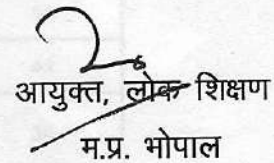 आयुक्त, लोक शिक्षण
म.प्र. भोपाल